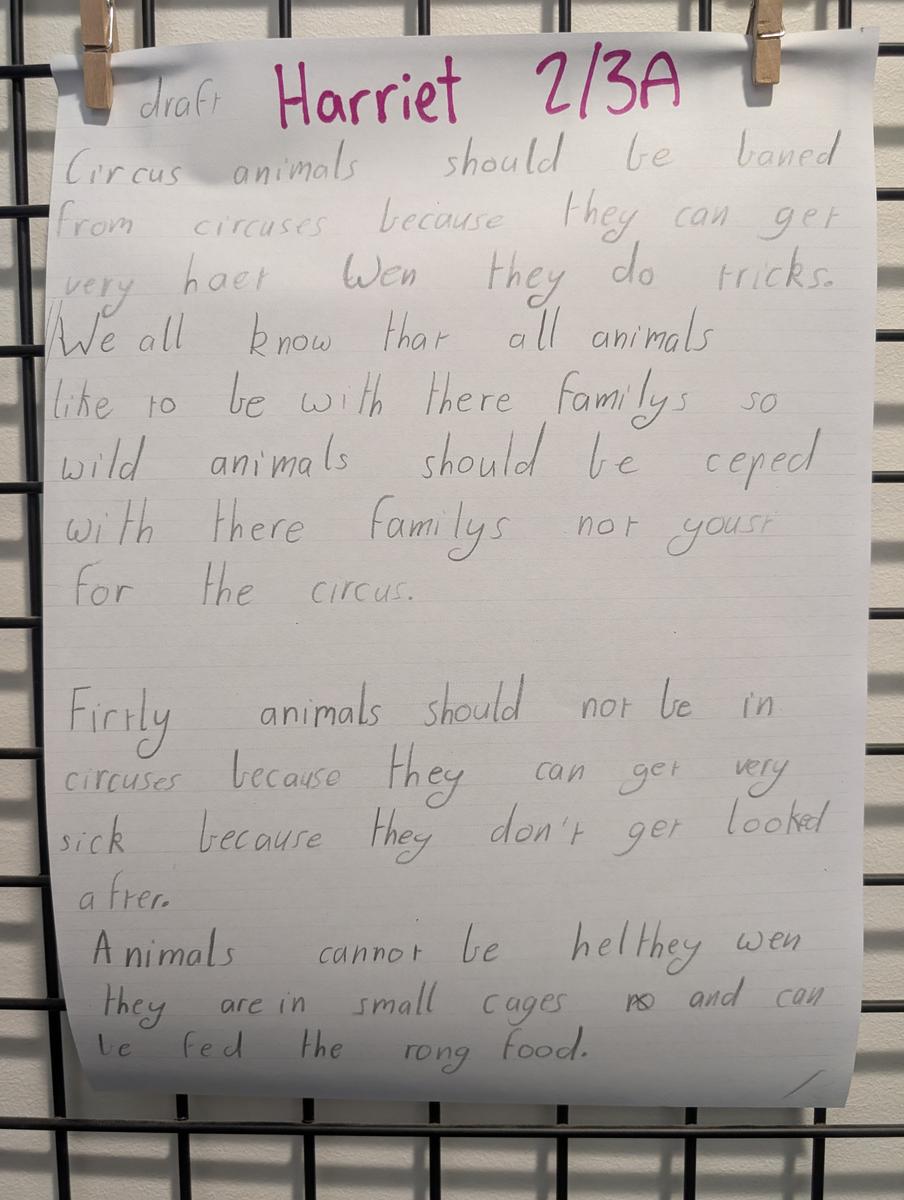 draft Harriet 2/3A
Circus animals should be baned
from circuses because they can get
very haet wen they do tricks.
We all know that all animals
like to be with there familys so
wild animals should be ceped
with there familys not youst
for the circus.
Firtly animals should not be in
circuses because they can get very
sick because they don't get looked
after.
Animals cannot be helthey wen
they are in small cages and can
be fed the rong food.